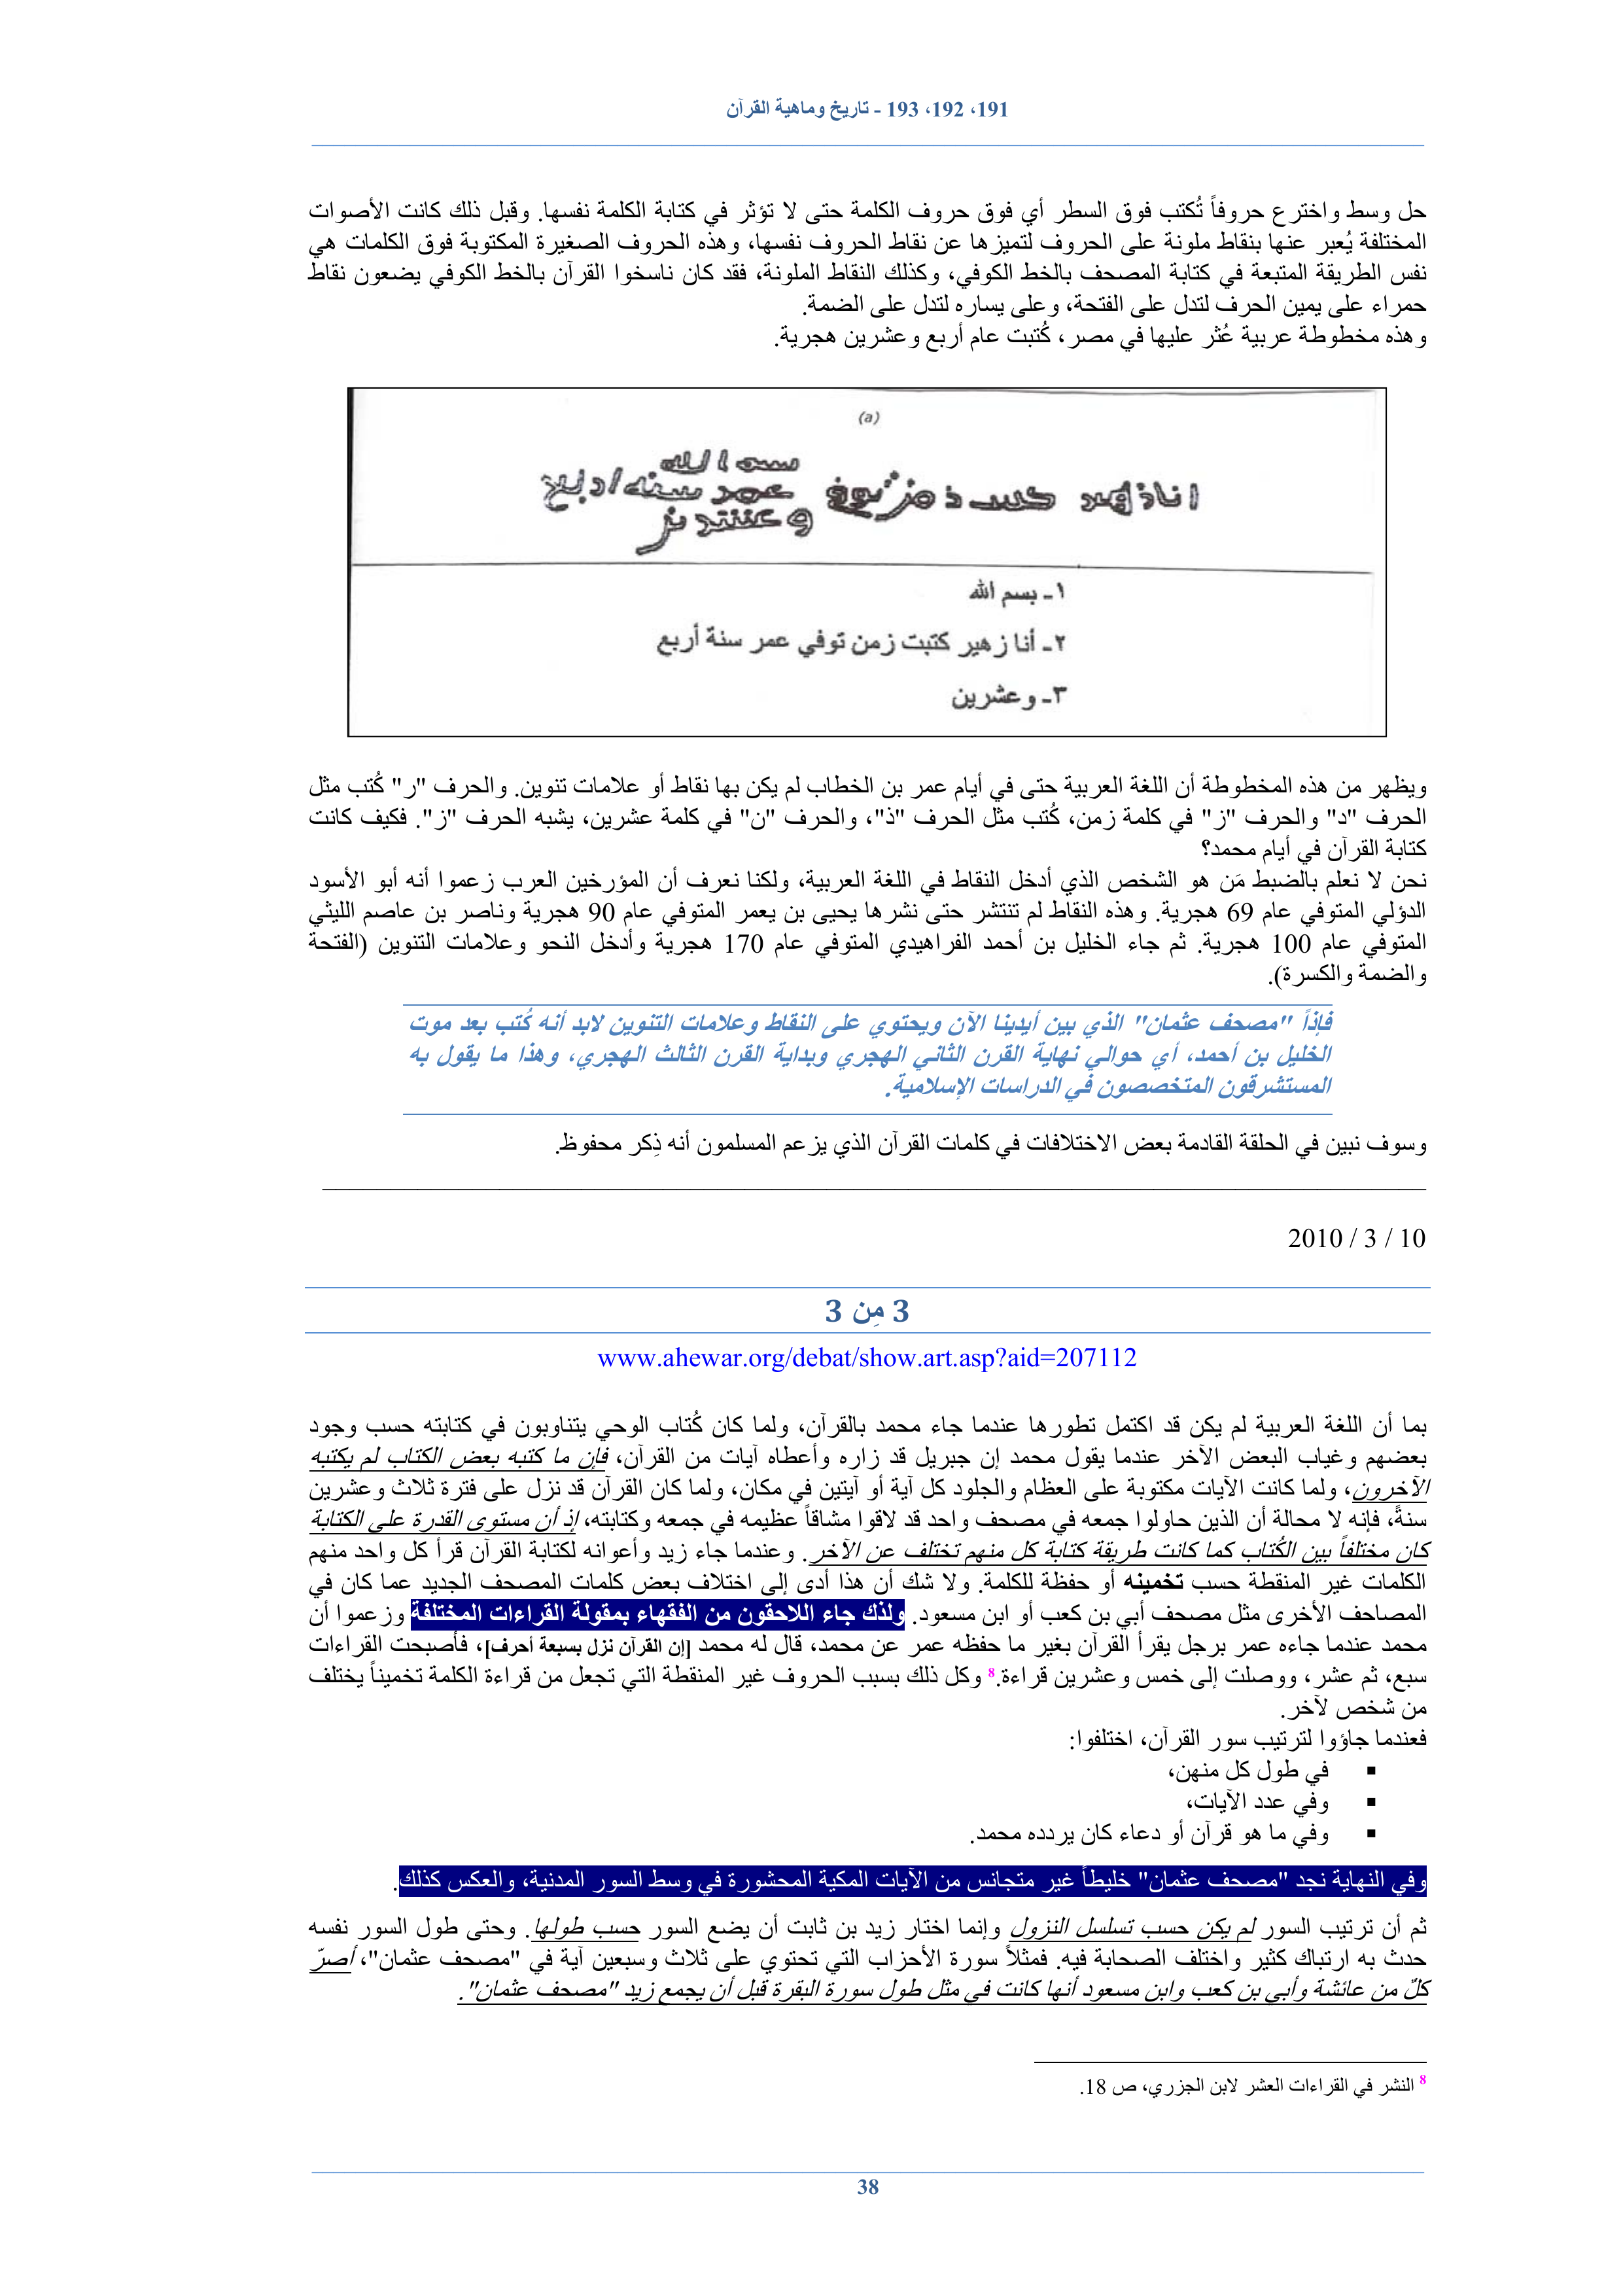 191، 192، 193 - تاريخ وماهية القرآن
حل وسط واخترع حروفاً تُكتب فوق السطر أي فوق حروف الكلمة حتى لا تؤثر في كتابة الكلمة نفسها. وقبل ذلك كانت الأصوات
المختلفة يُعبر عنها بنقاط ملونة على الحروف لتميزها عن نقاط الحروف نفسها، وهذه الحروف الصغيرة المكتوبة فوق الكلمات هي
نفس الطريقة المتبعة في كتابة المصحف بالخط الكوفي، وكذلك النقاط الملونة، فقد كان ناسخوا القرآن بالخط الكوفي يضعون نقاط
حمراء على يمين الحرف لتدل على الفتحة، وعلى يساره لتدل على الضمة.
وهذه مخطوطة عربية عُثر عليها في مصر، كُتبت عام أربع وعشرين هجرية.
(a)
١- بسم الله
٢- أنا زهير كتبت زمن توفي عمر سنة أربع
٣- وعشرين
ويظهر من هذه المخطوطة أن اللغة العربية حتى في أيام عمر بن الخطاب لم يكن بها نقاط أو علامات تنوين. والحرف "ر" كُتب مثل
الحرف "د" والحرف "ز" في كلمة زمن، كُتب مثل الحرف "ذ"، والحرف "ن" في كلمة عشرين، يشبه الحرف "ز". فكيف كانت
كتابة القرآن في أيام محمد؟
نحن لا نعلم بالضبط مَن هو الشخص الذي أدخل النقاط في اللغة العربية، ولكنا نعرف أن المؤرخين العرب زعموا أنه أبو الأسود
الدؤلي المتوفي عام 69 هجرية. وهذه النقاط لم تنتشر حتى نشرها يحيى بن يعمر المتوفي عام 90 هجرية وناصر بن عاصم الليثي
المتوفي عام 100 هجرية. ثم جاء الخليل بن أحمد الفراهيدي المتوفي عام 170 هجرية وأدخل النحو وعلامات التنوين (الفتحة
والضمة والكسرة).
فإذاً "مصحف عثمان" الذي بين أيدينا الآن ويحتوي على النقاط وعلامات التنوين لابد أنه كُتب بعد موت
الخليل بن أحمد، أي حوالي نهاية القرن الثاني الهجري وبداية القرن الثالث الهجري، وهذا ما يقول به
المستشرقون المتخصصون في الدراسات الإسلامية.
وسوف نبين في الحلقة القادمة بعض الاختلافات في كلمات القرآن الذي يزعم المسلمون أنه ذِكر محفوظ.
2010 / 3 / 10
3 مِن 3
www.ahewar.org/debat/show.art.asp?aid=207112
بما أن اللغة العربية لم يكن قد اكتمل تطورها عندما جاء محمد بالقرآن، ولما كان كُتاب الوحي يتناوبون في كتابته حسب وجود
بعضهم وغياب البعض الآخر عندما يقول محمد إن جبريل قد زاره وأعطاه آيات من القرآن، فإن ما كتبه بعض الكتاب لم يكتبه
الآخرون، ولما كانت الآيات مكتوبة على العظام والجلود كل آية أو آيتين في مكان، ولما كان القرآن قد نزل على فترة ثلاث وعشرين
سنةً، فإنه لا محالة أن الذين حاولوا جمعه في مصحف واحد قد لاقوا مشاقاً عظيمه في جمعه وكتابته، إذ أن مستوى القدرة على الكتابة
كان مختلفاً بين الكُتاب كما كانت طريقة كتابة كل منهم تختلف عن الآخر. وعندما جاء زيد وأعوانه لكتابة القرآن قرأ كل واحد منهم
الكلمات غير المنقطة حسب تخمينه أو حفظة للكلمة. ولا شك أن هذا أدى إلى اختلاف بعض كلمات المصحف الجديد عما كان في
المصاحف الأخرى مثل مصحف أبي بن كعب أو ابن مسعود. ولذك جاء اللاحقون من الفقهاء بمقولة القراءات المختلفة وزعموا أن
محمد عندما جاءه عمر برجل يقرأ القرآن بغير ما حفظه عمر عن محمد، قال له محمد [إن القرآن نزل بسبعة أحرف]، فأصبحت القراءات
سبع، ثم عشر، ووصلت إلى خمس وعشرين قراءة.8 وكل ذلك بسبب الحروف غير المنقطة التي تجعل من قراءة الكلمة تخميناً يختلف
من شخص لآخر.
فعندما جاؤوا لترتيب سور القرآن، اختلفوا:
▪ في طول كل منهن،
▪ وفي عدد الآيات،
▪ وفي ما هو قرآن أو دعاء كان يردده محمد.
وفي النهاية نجد "مصحف عثمان" خليطاً غير متجانس من الآيات المكية المحشورة في وسط السور المدنية، والعكس كذلك.
ثم أن ترتيب السور لم يكن حسب تسلسل النزول وإنما اختار زيد بن ثابت أن يضع السور حسب طولها. وحتى طول السور نفسه
حدث به ارتباك كثير واختلف الصحابة فيه. فمثلاً سورة الأحزاب التي تحتوي على ثلاث وسبعين آية في "مصحف عثمان"، أصرّ
كلّ من عائشة وأبي بن كعب وابن مسعود أنها كانت في مثل طول سورة البقرة قبل أن يجمع زيد "مصحف عثمان".
8 النشر في القراءات العشر لابن الجزري، ص 18.
38